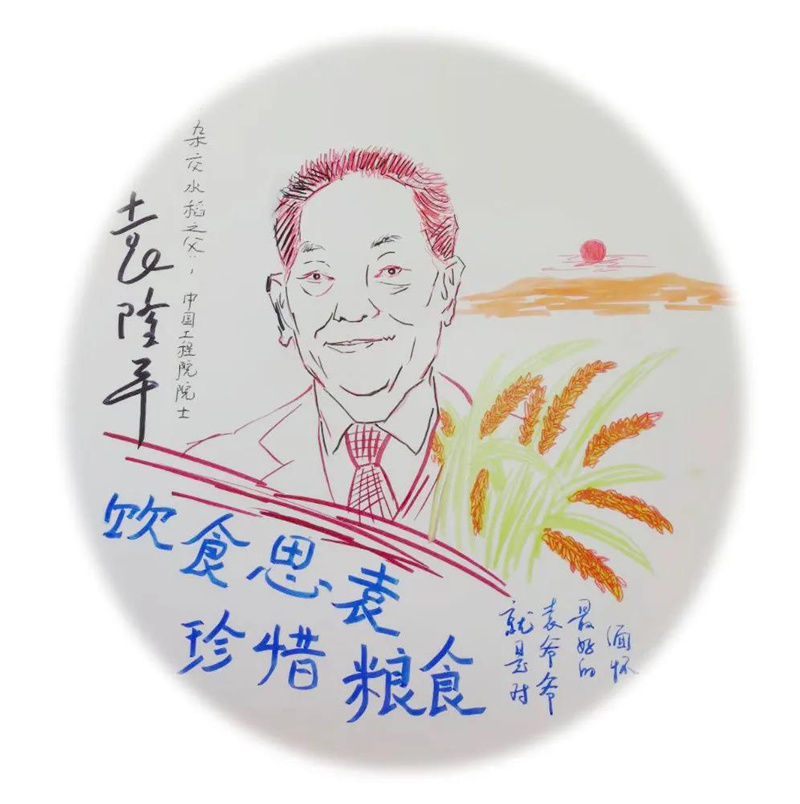 杂交水稻之父”，中国工程院院士
袁隆平
饮食思袁
珍惜粮食
就是对
袁爷爷
最好的
缅怀